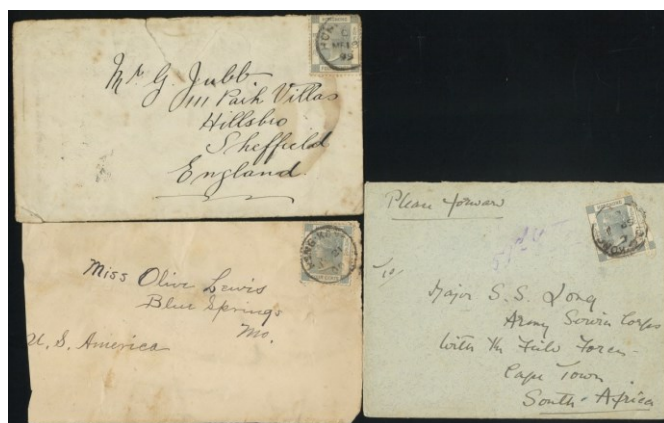 Mr G. Jubb
111 Park Villas
Hillsbro
Sheffield
England
HONG KONG
Miss Olive Lewis
Blue Springs
Mo.
U. S. America
Please forward
To
Major S. S. Long
Army Service Corps
With the Field Force -
Cape Town
South - Africa